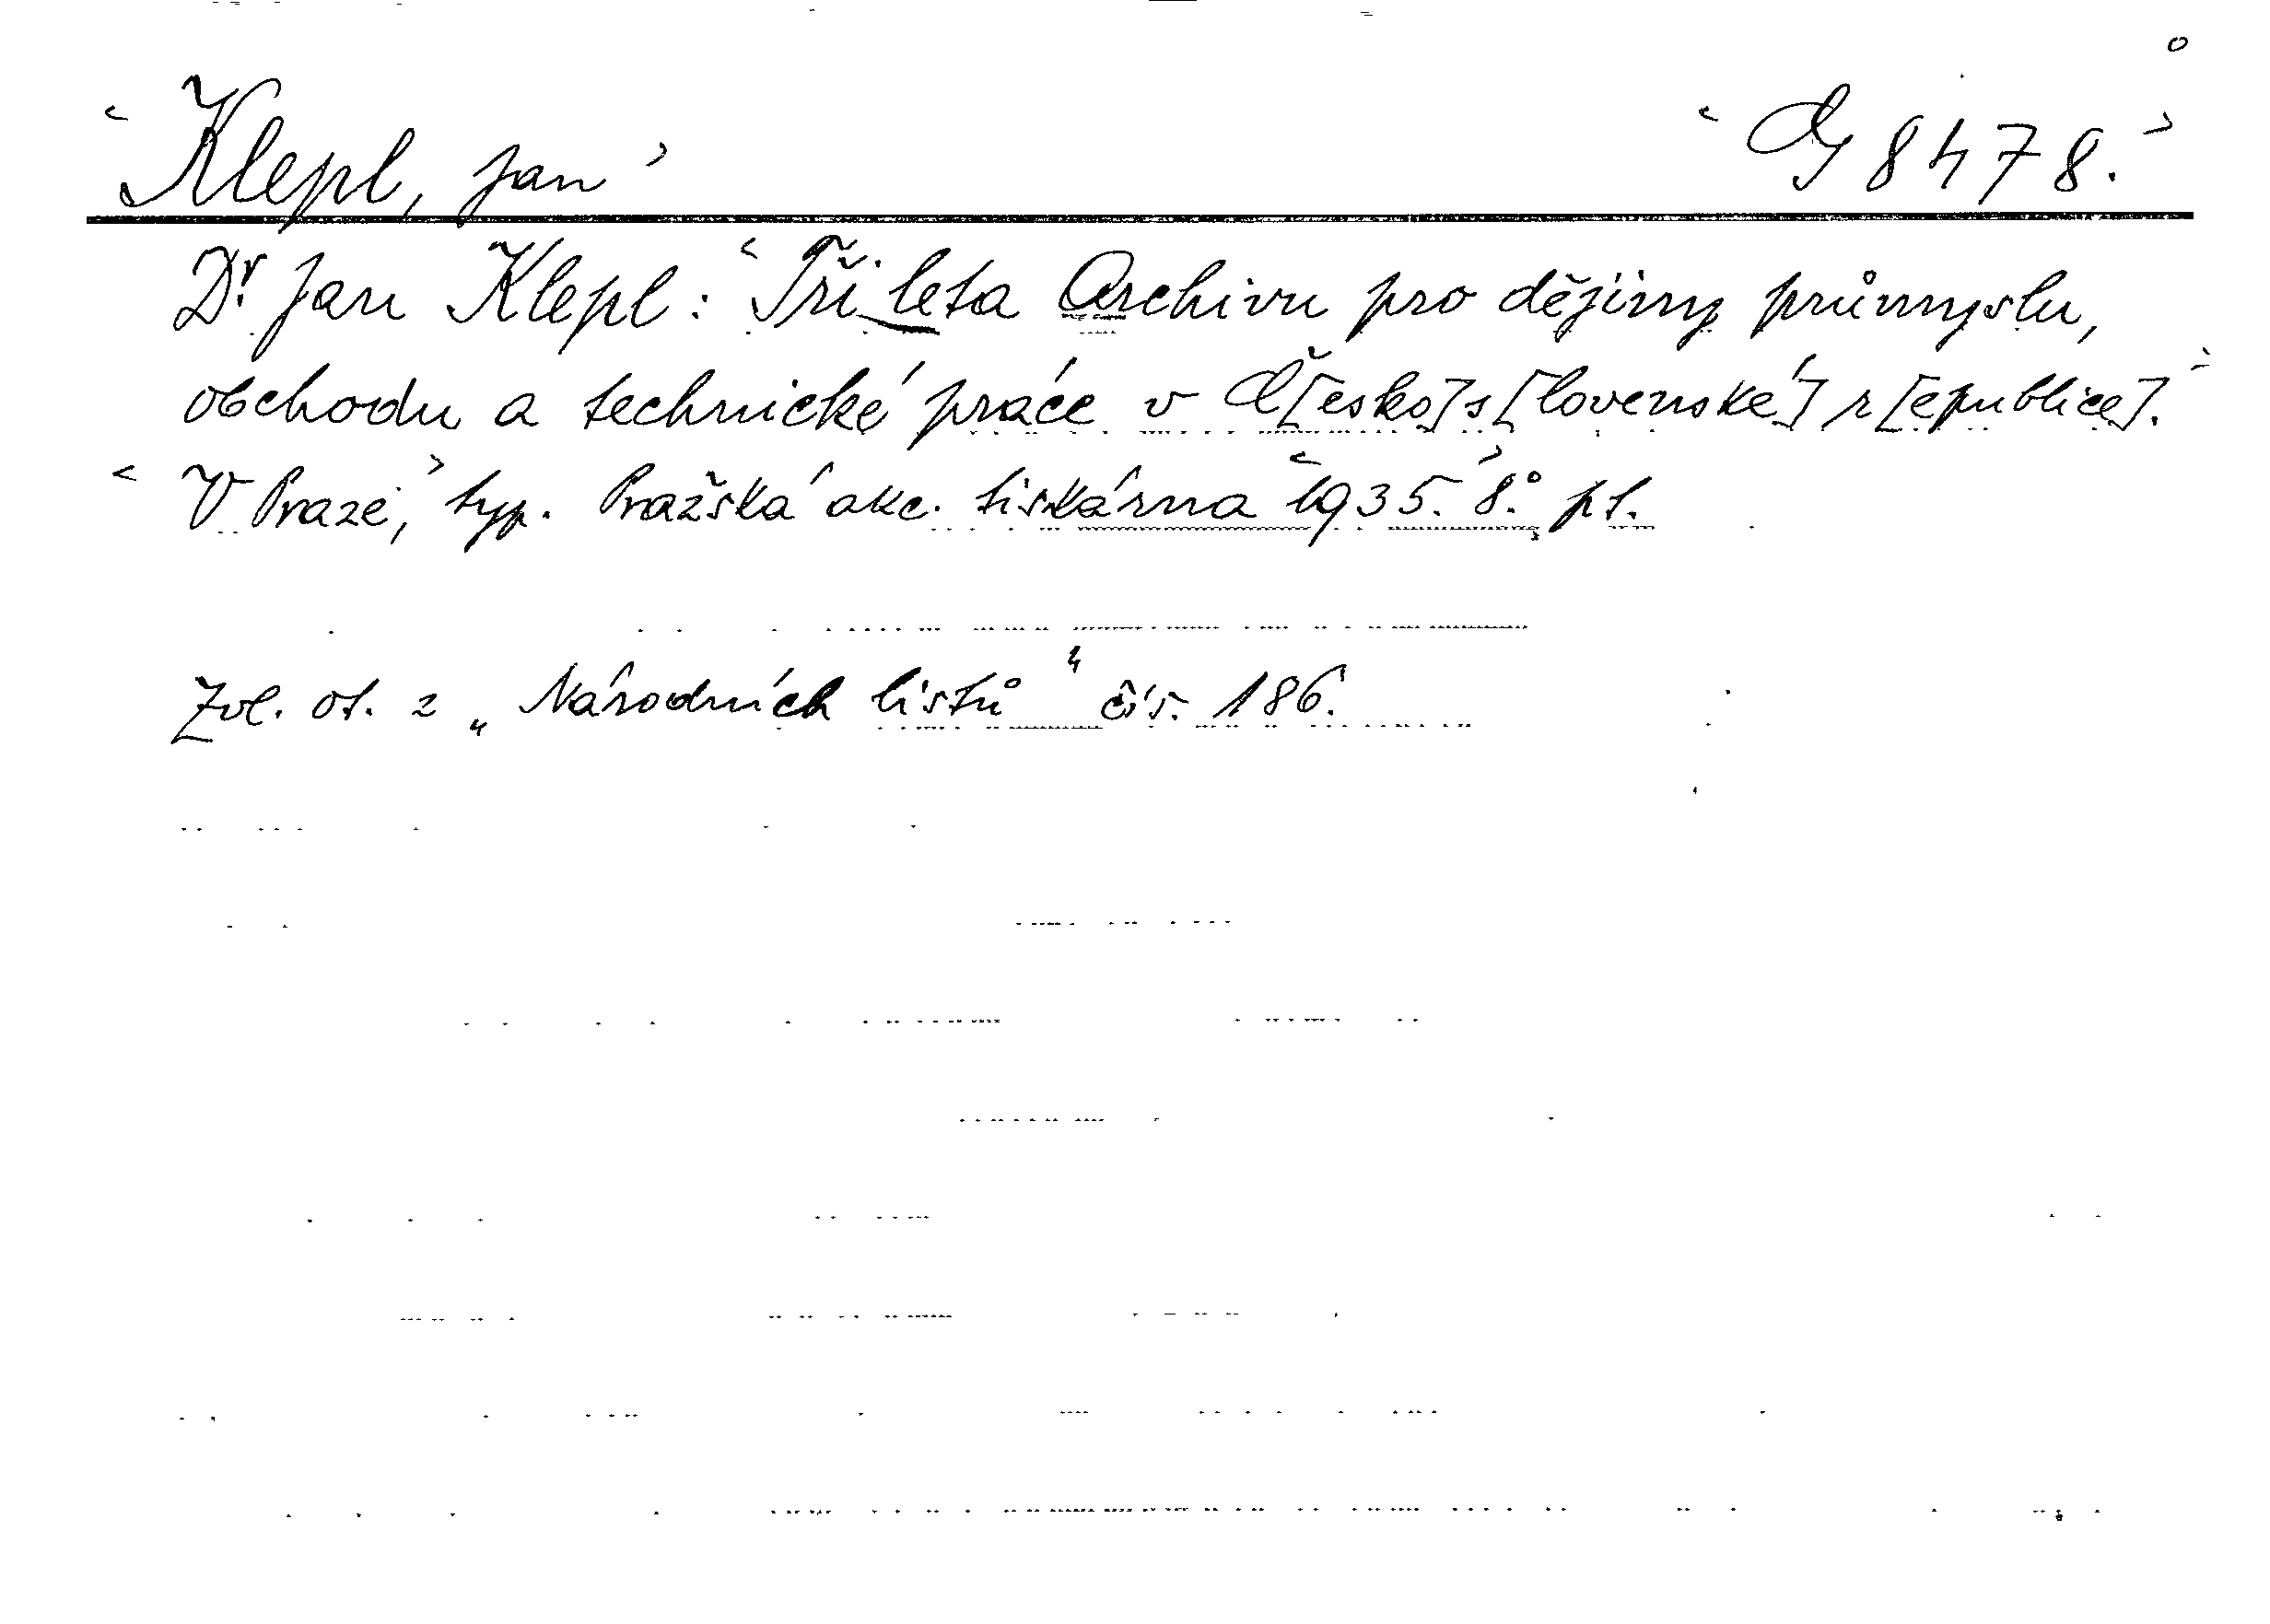 Klepl, Jan G 8478.
Dr. Jan Klepl: Tři leta Archivu pro dějiny průmyslu,
obchodu a technické práce v Č[esko]s[lovenské] r[epublice].
V Praze, typ. Pražská akc. tiskárna 1935. 8.° pl.
Zvl. ot. z „Národních listů" čís. 186.